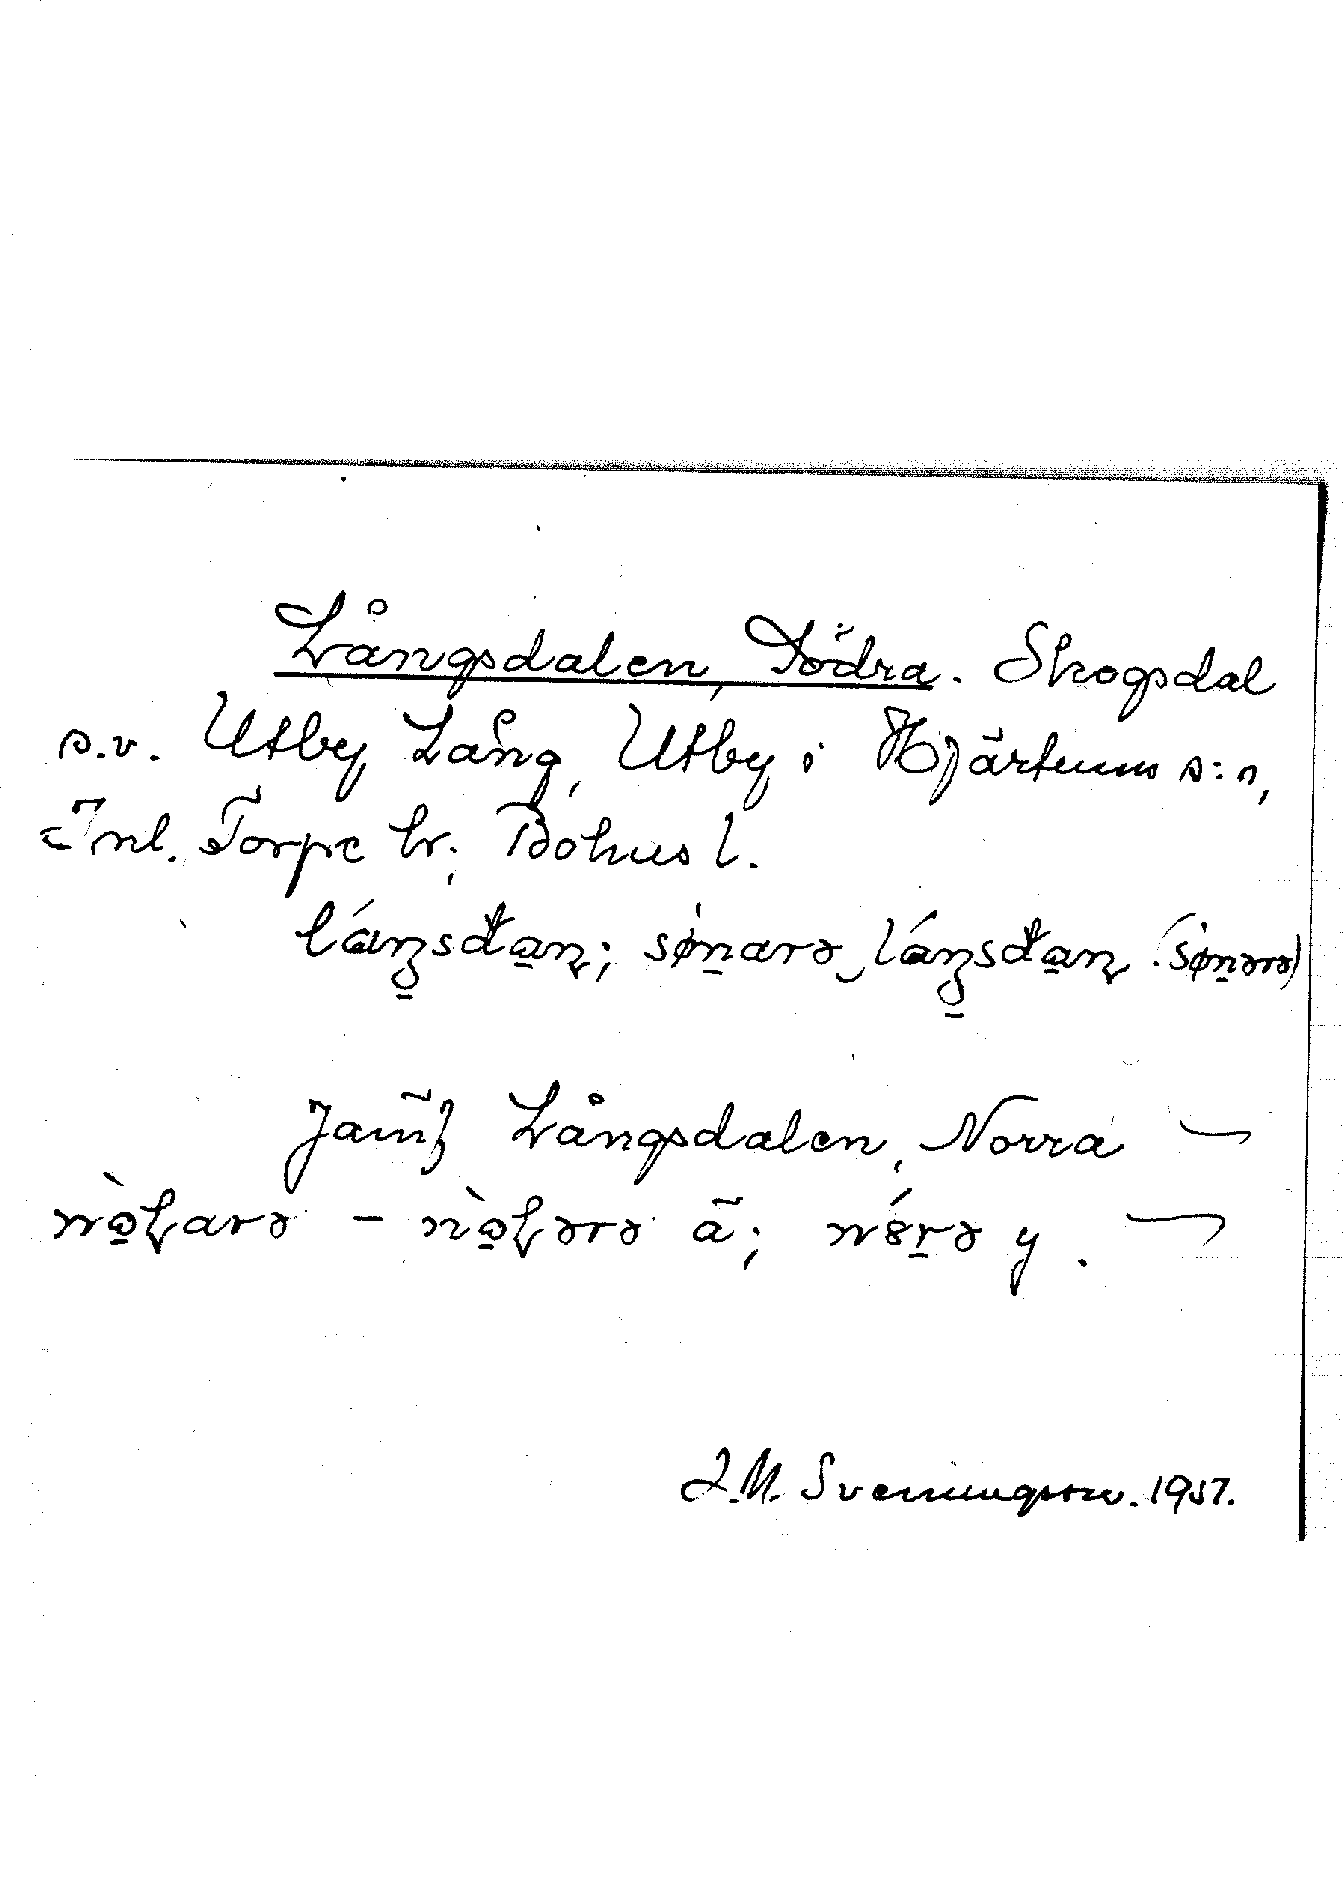 Långsdalen, Södra. Skogsdal
s.v. Utby Lång, Utby i Hjärtums s:n,
Inl. Torpe hr; Bohus l.
láŋsđa̱n; sø̍ṉarə lánŋsđa̱n (sø̍ṉərə)
Jämf Långsdalen, Norra
– ä; y.
J.M. Sveningsson. 1957.